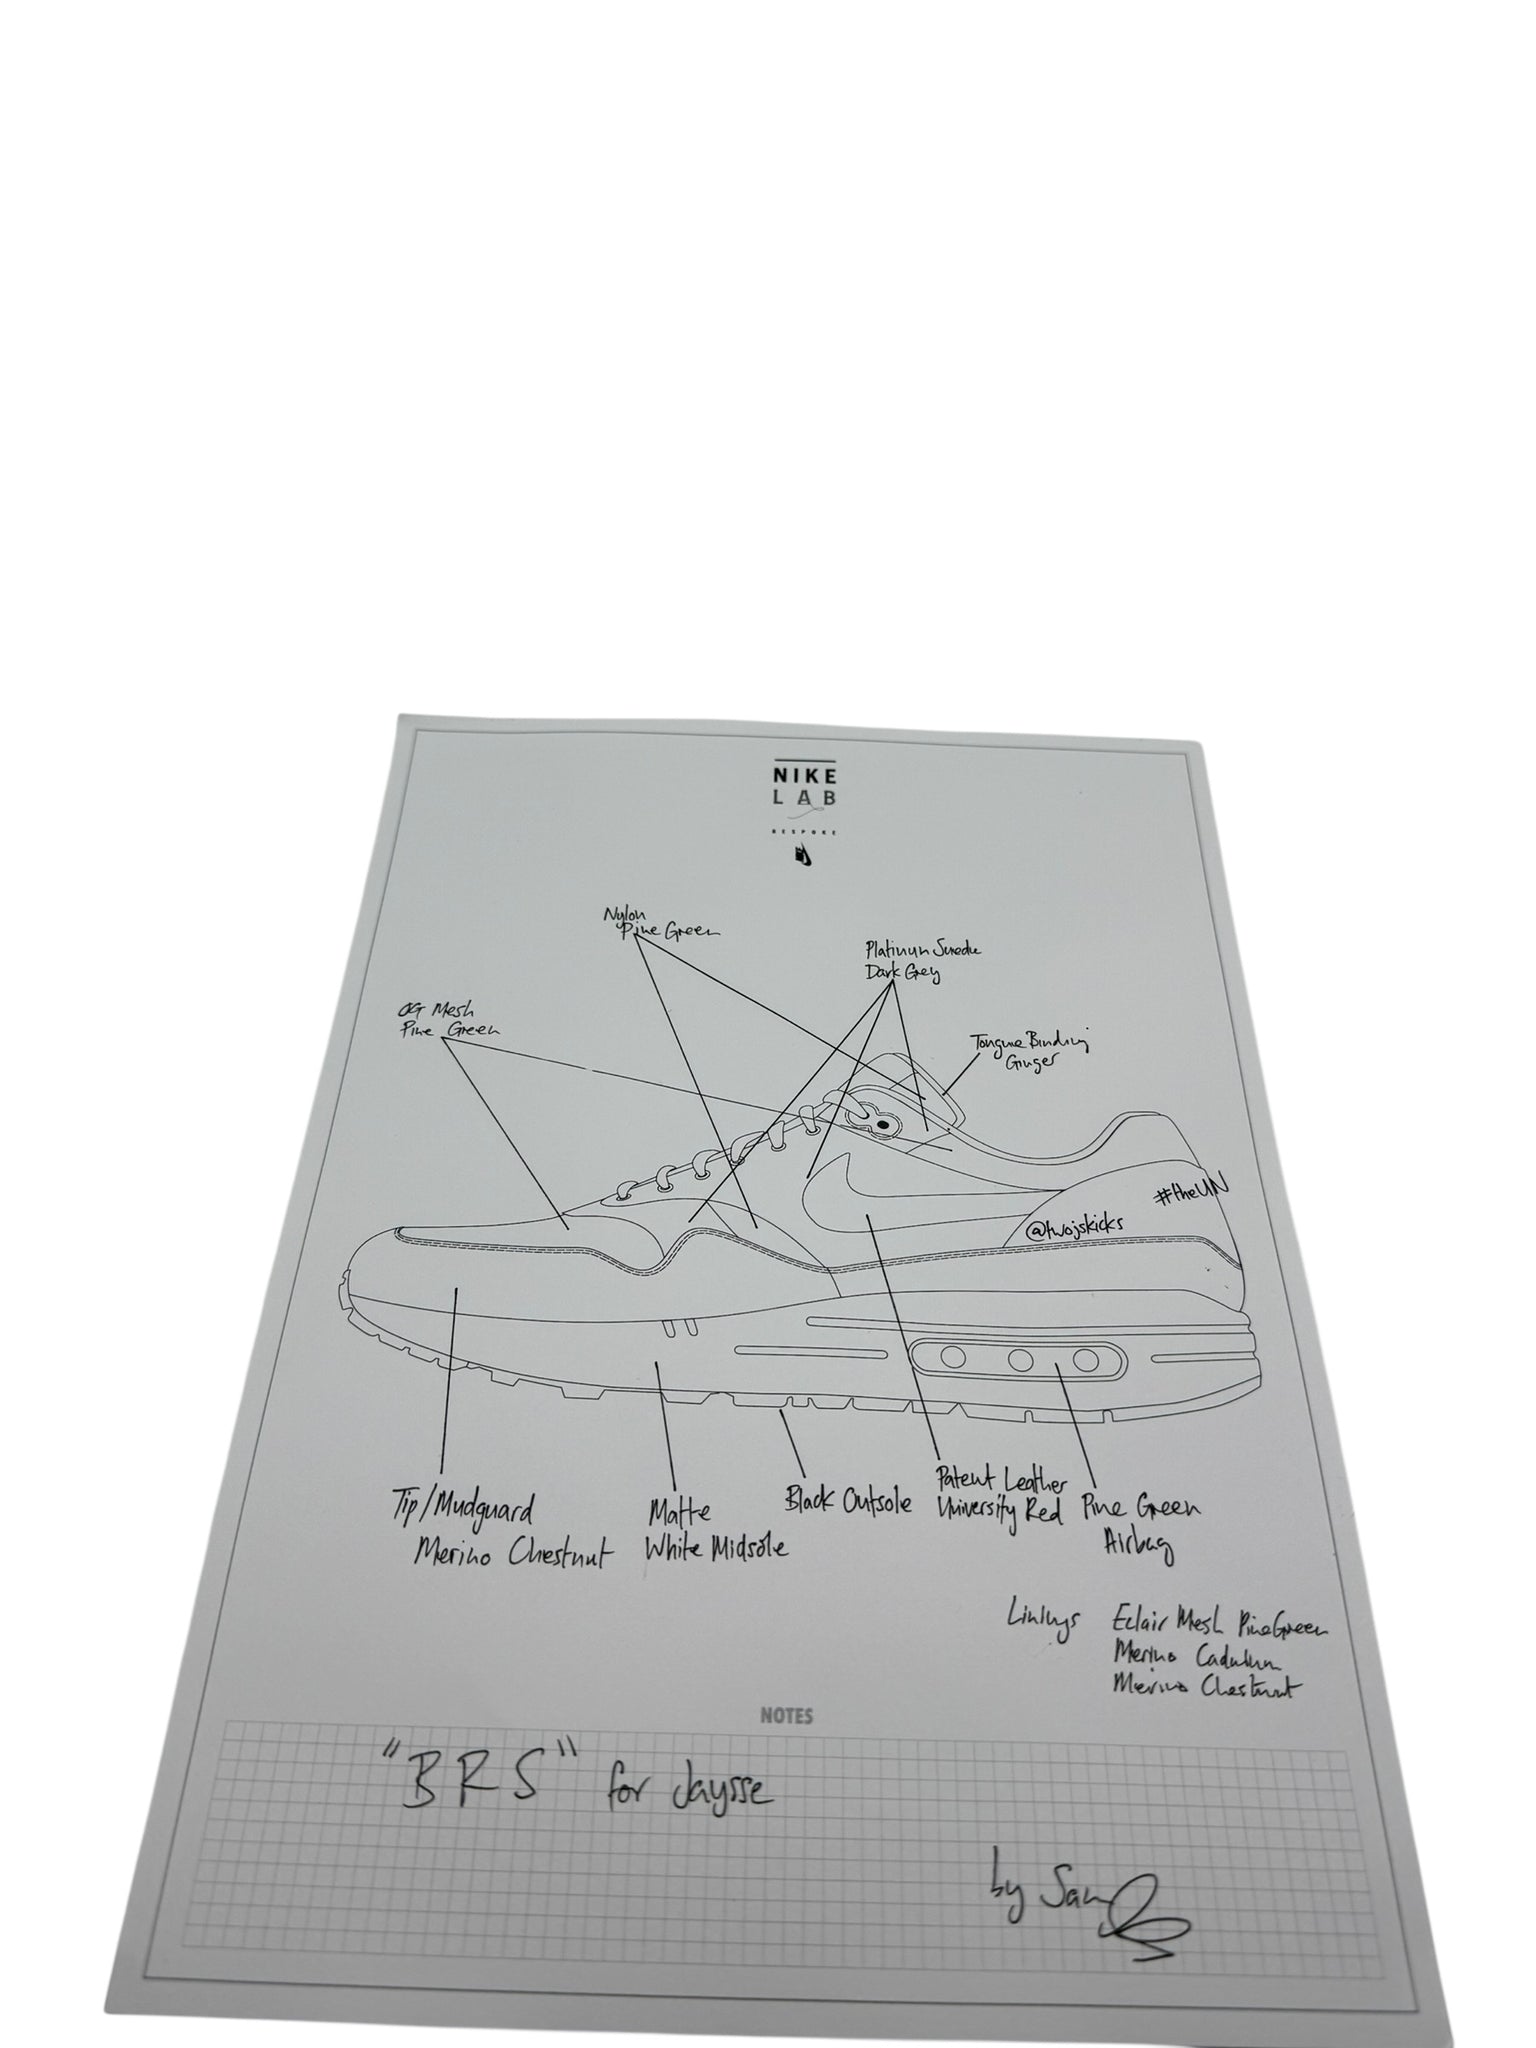 NIKE
LAB
BESPOKE
Nylon
Pine Green
Platinum Suede
Dark Grey
OG Mesh
Pine Green
Tongue Binding
Ginger
#theUN
@twojskicks
Tip/Mudguard
Merino Chestnut
Matte
White Midsole
Black Outsole
Patent Leather
University Red
Pine Green
Airbag
Linings Eclair Mesh Pine Green
Merino
Merino Chestnut
NOTES
"BRS" for Jaysse
by Sam